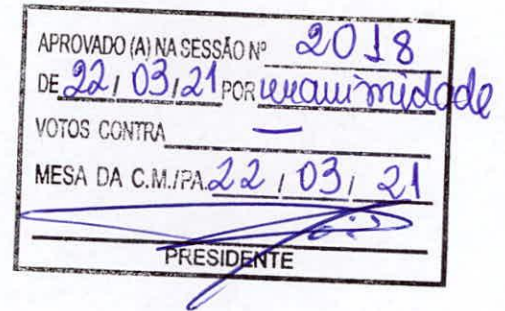 APROVADO (A) NA SESSÃO Nº 2018
DE 22/03/21 POR unanimidade
VOTOS CONTRA —
MESA DA C.M./PA. 22/03/21
PRESIDENTE